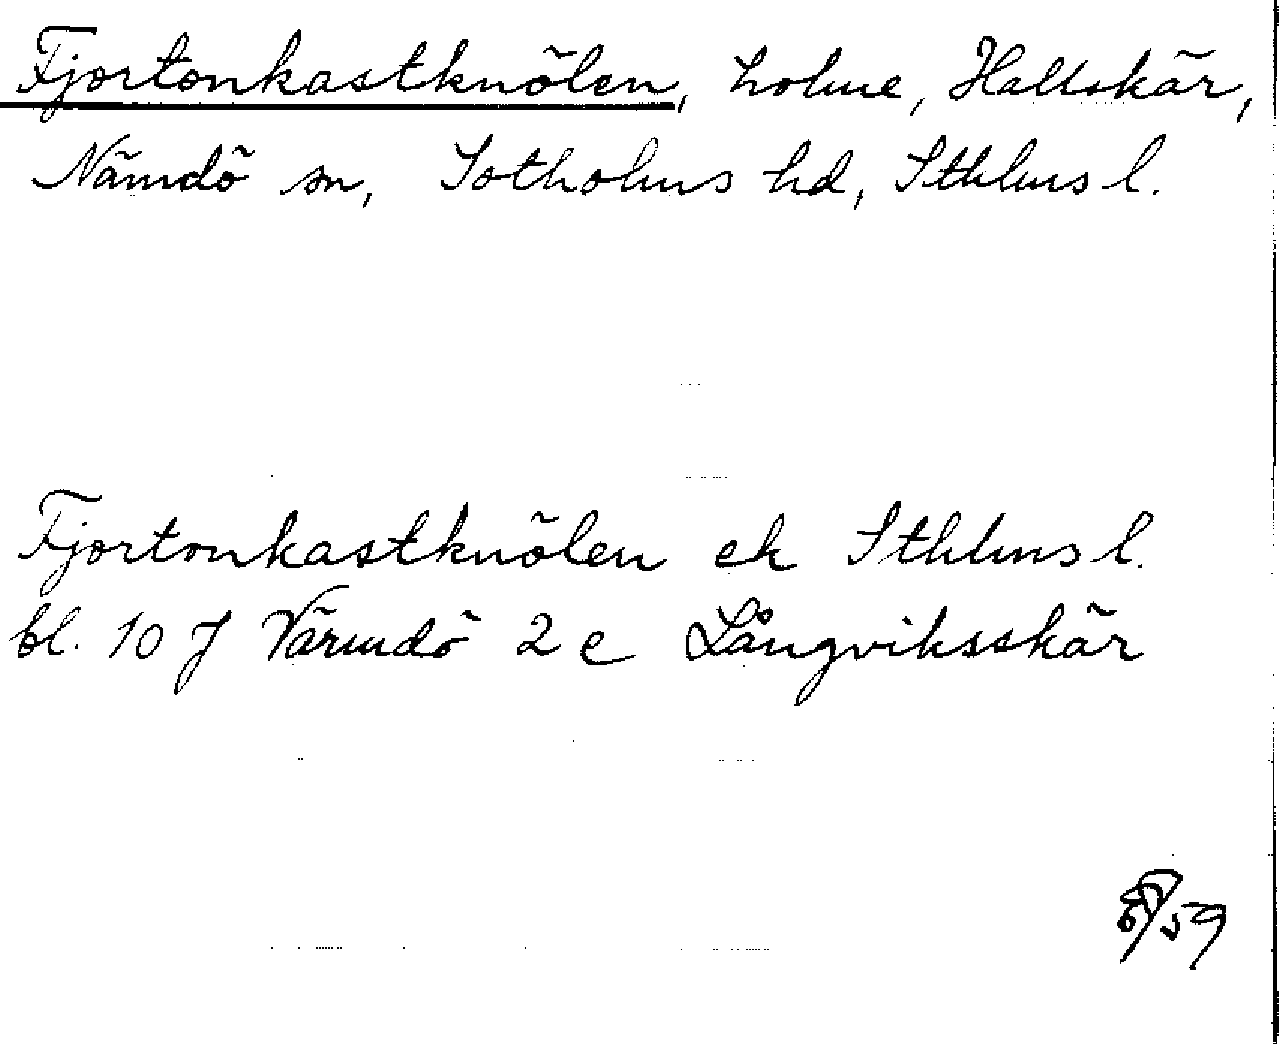 Fjortonkastknölen, holme, Hallskär,
Nämdö sn, Sotholms hd, Sthlms l.
Fjortonkastknölen ek Sthlms l.
bl. 10 J Värmdö 2 e Långviksskär
59